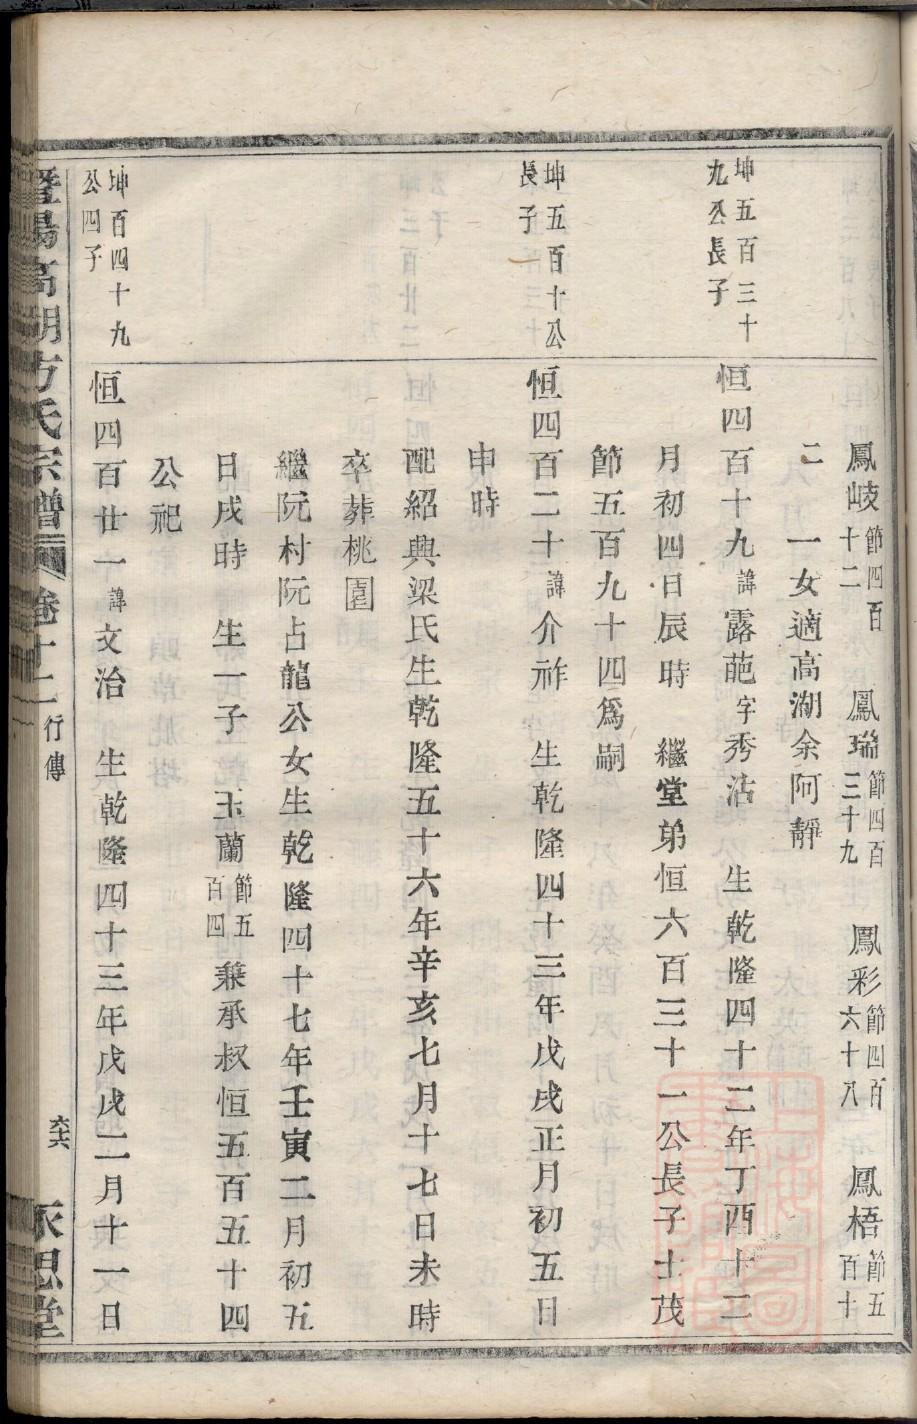 鳳岐節四百十二 鳳瑞節四百三十九 鳳彩節四百六十八 鳳梧節五百十
二 一女適高湖余阿靜
坤五百三十九公長子
恒四百十九諱露葩字秀沽 生乾隆四十二年丁酉十二
月初四日辰時 繼堂弟恒六百三十一公長子士茂
節五百九十四爲嗣
坤五百十公長子
恒四百二十諱介祚 生乾隆四十三年戊戌正月初五日
申時
配紹興梁氏生乾隆五十六年辛亥七月十七日未時
卒葬桃園
繼阮村阮占龍公女生乾隆四十七年壬寅二月初五
日戌時 生一子 玉蘭節五百四 兼承叔恒五百五十四
公祀
坤百四十九公四子
恒四百廿一諱文治 生乾隆四十三年戊戌二月十一日
暨陽高湖方氏宗譜 卷十二 行傳 六六 永思堂